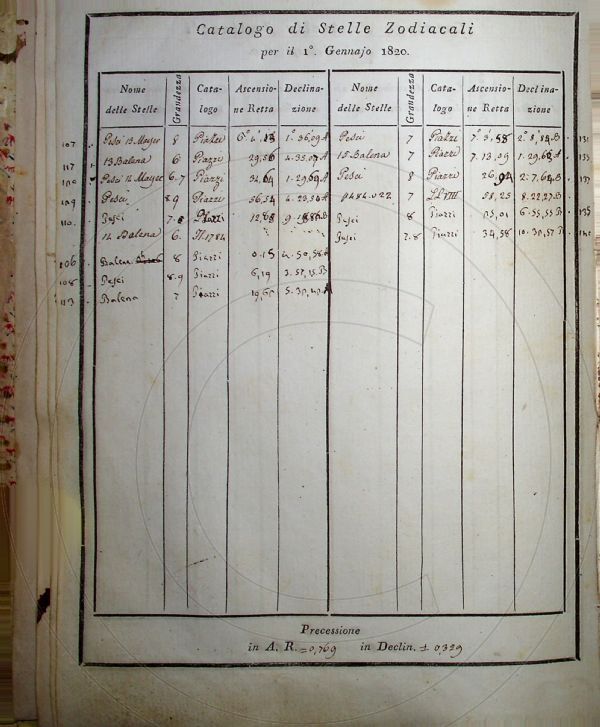 Catalogo di Stelle Zodiacali
per il 1°. Gennajo 1820.
Nome delle Stelle Grandezza Cata-logo Ascensio-ne Retta Declina-zione Nome delle Stelle Grandezza Cata-logo Ascensio-ne Retta Declina-zione
107 Pesci 13 Mayer 8 Piazzi 1°.36,09 A Pesci 7 Piazzi 7°.3,58
117 13 Balena 6 Piazzi 29,56 4.35,07 A 15 Balena 7 Piazzi 7.13,09 1.29,68 A
Pesci 14 Mayer 6.7 Piazzi 32,64 1.29,69 A Pesci 8 Piazzi 26,94 2.7,64 B 137
109 Pesci 8.9 Piazzi 36,54 4.23,54 A 58,25 8.22,27 B
110 Pesci 7.8 Piazzi Pesci 8 Piazzi 6.55,55 B 135
14 Balena 6. Pesci 7.8 Piazzi 34,58 10.30,57 B
106 Balena 8 Piazzi 0.15 4.50,58 A
108 Pesci 8.9 Piazzi 6,19 3.57,15 B
113 Balena 7 Piazzi 19,60
Precessione
in A. R. = 0,769 in Declin. ± 0,329